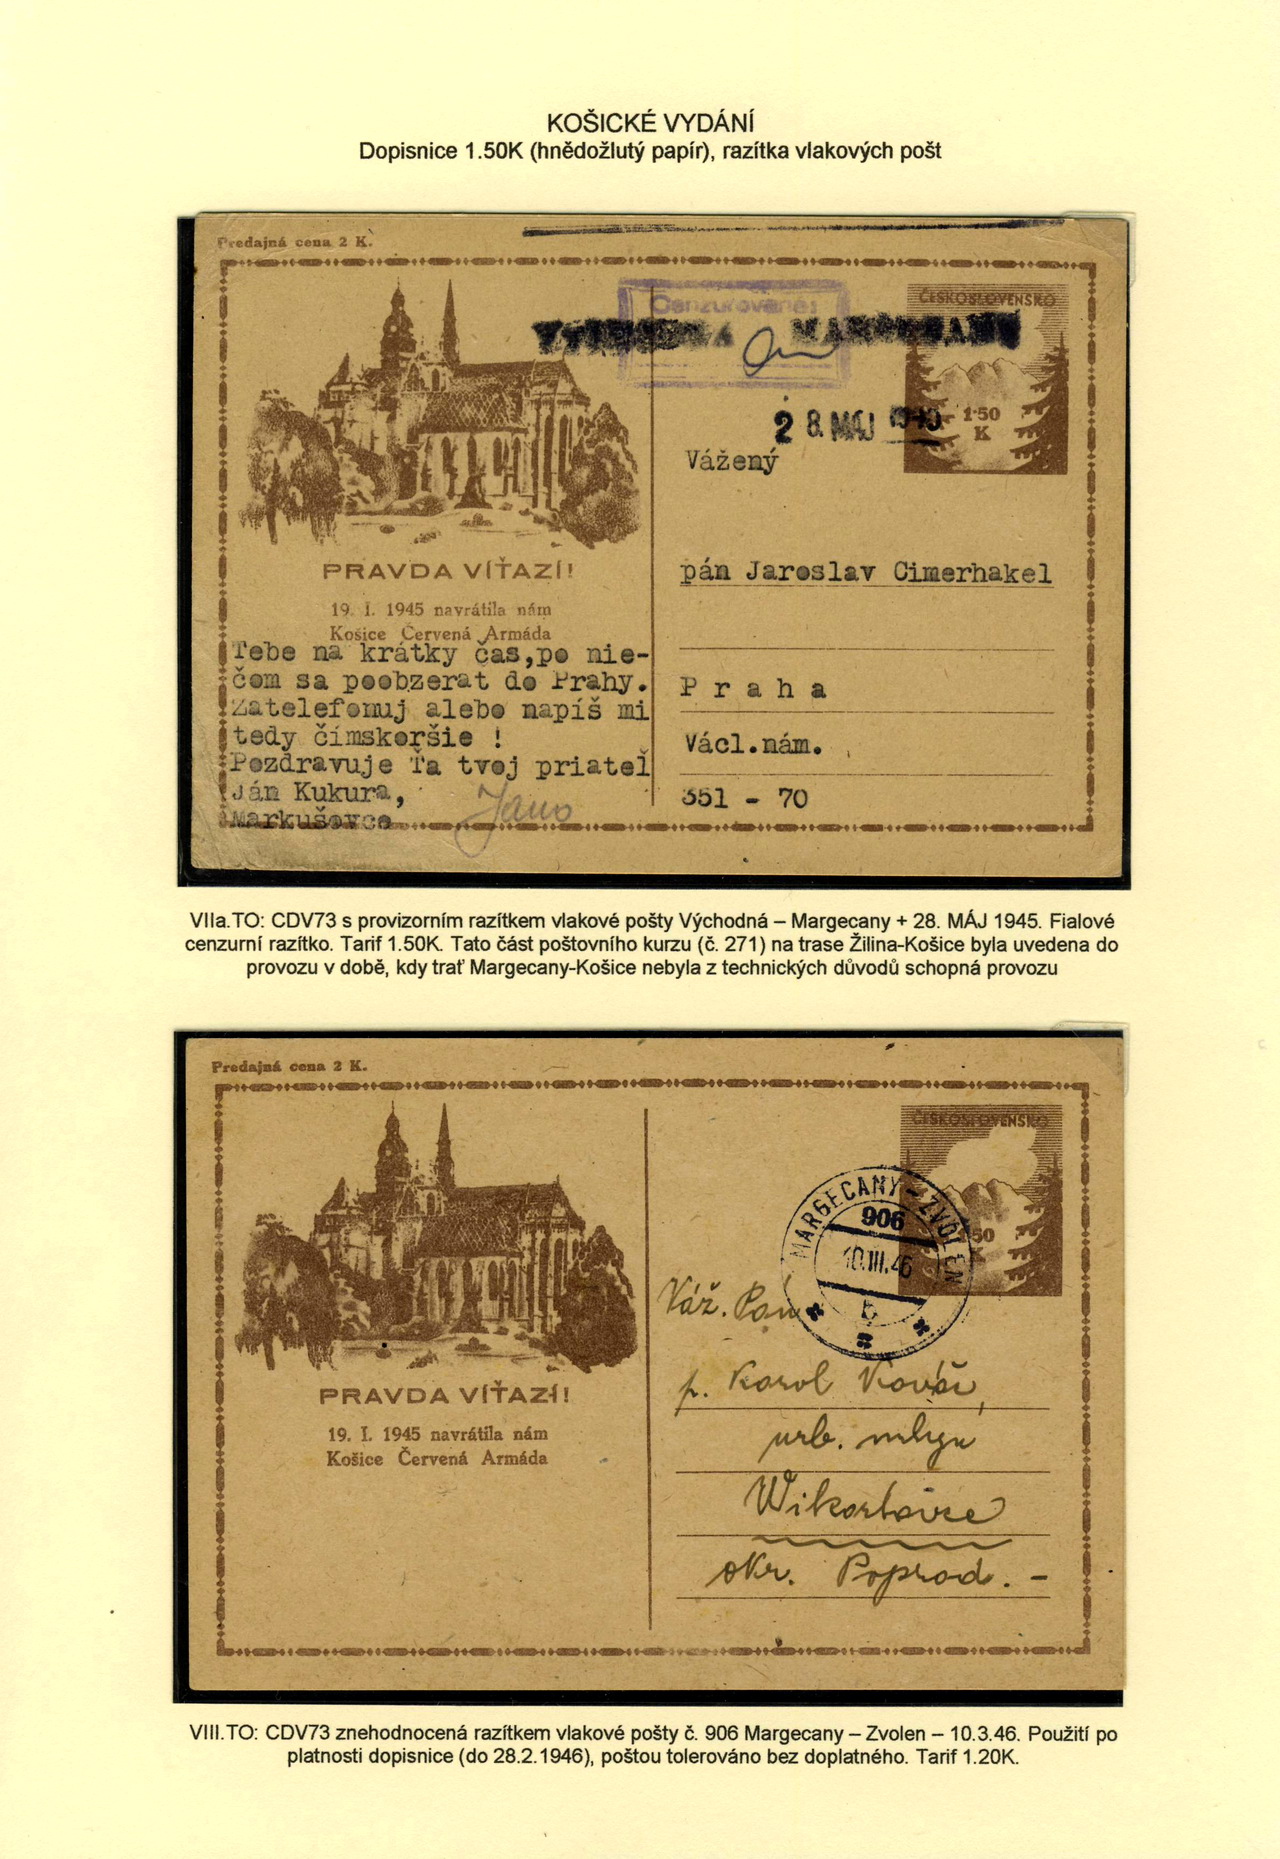 KOŠICKÉ VYDÁNÍ
Dopisnice 1.50K (hnědožlutý papír), razítka vlakových pošt
Predajná cena 2 K.
Cenzurované:
MARGECANY
ČESKOSLOVENSKO
1·50
K
28. MÁJ 1945
Vážený
pán Jaroslav Cimerhakel
Praha
Václ.nám.
351 - 70
PRAVDA VÍŤAZÍ!
19. I. 1945 navrátila nám
Košice Červená Armáda
Tebe na krátky čas,po nie-
čom sa poobzerat do Prahy.
Zatelefonuj alebo napíš mi
tedy čímskoršie !
Pozdravuje Ťa tvoj priateľ
Ján Kukura,
Jano
Markušovce
VIIa.TO: CDV73 s provizorním razítkem vlakové pošty Východná – Margecany + 28. MÁJ 1945. Fialové
cenzurní razítko. Tarif 1.50K. Tato část poštovního kurzu (č. 271) na trase Žilina-Košice byla uvedena do
provozu v době, kdy trať Margecany-Košice nebyla z technických důvodů schopná provozu
Predajná cena 2 K.
ČESKOSLOVENSKO
50
K
MARGECANY – ZVOLEN
906
10.III.46
b
Váž. Pán
p. Karol Kováč,
urb. mlyn
Wikartovce
okr. Poprad. –
PRAVDA VÍŤAZÍ!
19. I. 1945 navrátila nám
Košice Červená Armáda
VIII.TO: CDV73 znehodnocená razítkem vlakové pošty č. 906 Margecany – Zvolen – 10.3.46. Použití po
platnosti dopisnice (do 28.2.1946), poštou tolerováno bez doplatného. Tarif 1.20K.